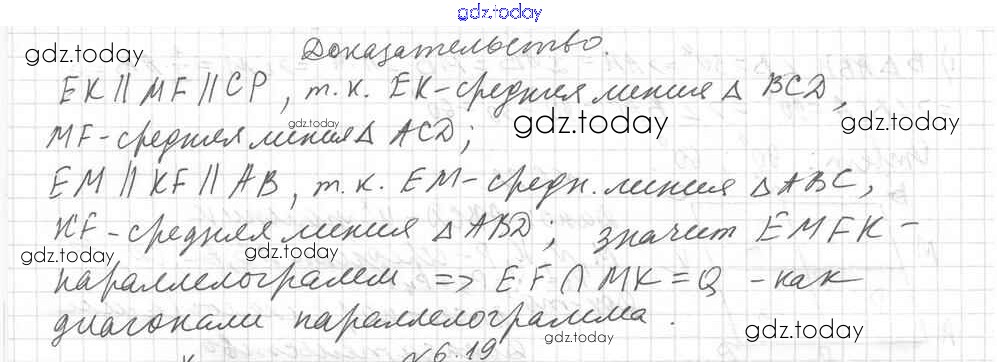 gdz.today
Доказательство.
gdz.today
gdz.today
EK || MF || CP, т.к. EK-средняя линия Δ BCD,
gdz.today gdz.today gdz.today
MF-средняя линия Δ ACD;
EM || KF || AB, т.к. EM-средн. линия Δ ABC,
KF-средняя линия Δ ABD; значит EMFK -
gdz.today gdz.today gdz.today
параллелограмм => EF ∩ MK = Q -как
диагонали параллелограмма.
gdz.today
№6.19